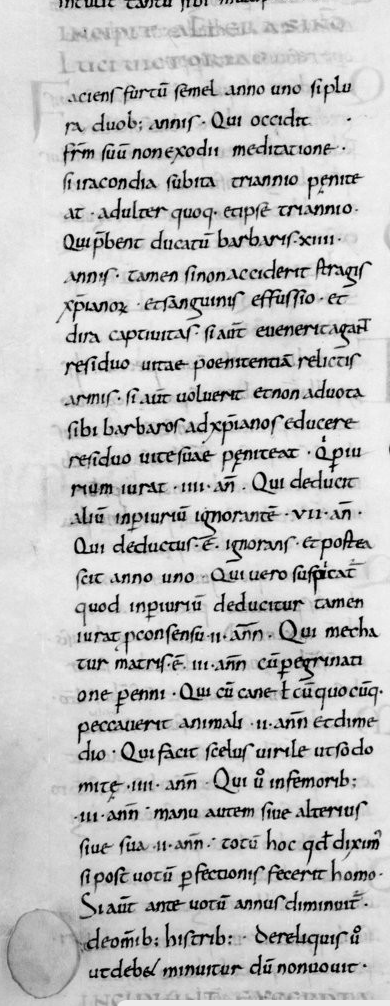 aciens furtū semel anno uno si plu
ra duob; annis · Qui occidit
frm̄ suū non exodii meditatione ·
si iracondia subita triannio penite
at · adulter quoq· et ipse triannio ·
Qui p̄bent ducatū barbaris · xiiii ·
annis · tamen si non acciderit stragis
xp̄ianoꝝ · et sanguinis effussio · et
dira captivitas si aūt evenerit agant
residuo vitae poenitentiā relictis
armis · si aūt voluerit et non ad vota
sibi barbaros ad xp̄ianos educere
residuo vite suae peniteat · Q̇ piu
rium iurat · iiii · an̄ · Qui deducit
aliū in piuriū ignorantē · vii · an̄ ·
Qui deductus · ē · ignorans · et postea
scit anno uno · Qui vero suspicat̄
quod in piuriū deducitur tamen
iurat p consensū · ii · ann̄ · Qui mecha
tur matris · ē · iii · ann̄ cū pegrinati
one penni · Qui cū cane ł cū quocūq·
peccaverit animali · ii · ann̄ et dime
dio · Qui facit scelus virile ut sodo
mite · iiii · ann̄ · Qui ů in femorib;
· iii · ann̄ · manu autem sive alterius
sive sua · ii · ann̄ · totū hoc qd̄ diximꝰ
si post votū pfectionis fecerit homo ·
Si aūt ante votū annus diminuit̄ ·
de om̄ib; his trib; · de reliquis ů
ut debeꞇ minuitur dū non vovit ·